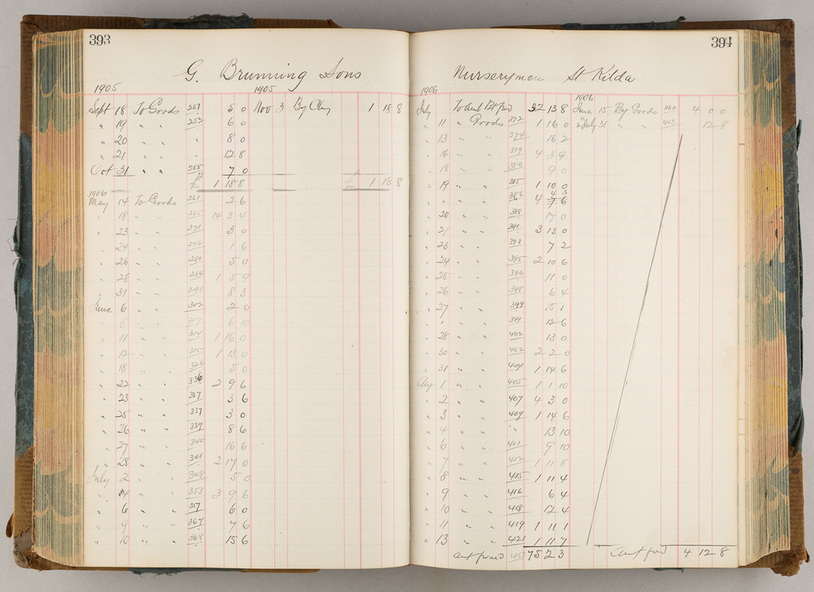 393
G. Brunning Sons
1905
1905
Sept 18 To Goods 251 5 0 Nov 3 By Chq 1 18 8
" 19 " " 252 6 0
" 20 " " " 8 0
" 21 " " " 12 8
Oct 31 " " 255 7 0
£ 1 18 8 £ 1 18 8
1906
May 14 To Goods 261 2 6
" 18 " " 265 14 3 4
" 23 " " 271 3 0
" 24 " " 276 1 6
" 26 " " 281 5 0
" 28 " " 288 1 5 9
" 31 " " 290 8 3
June 6 " " 302 2 0
" " " 6 10
" 11 " " 314 1 16 0
" 12 " " 315 1 13 0
" 18 " " 326 5 0
" 22 " " 336 2 9 6
" 23 " " 337 3 6
" 25 " " 337 3 0
" 26 " " 339 8 6
" 27 " " 340 16 6
" 28 " " 341 2 17 0
July 2 " " 348 5 0
" 4 " " 353 3 9 6
" 6 " " 357 6 0
" 9 " " 367 7 6
" 10 " " 368 15 6
394
Nurserymen St Kilda
1906
1906
July To Amt Bt fwd 32 13 8 June 15 By Goods 4 0 0
" 11 " Goods 372 1 16 0 July 31 " " 12 8
" 13 " " 374 16 2
" 16 " " 379 4 3 9
" 18 " " 9 0
" 19 " " 385 1 10 0
" " " 386 4
" 20 " " 388 17 0
" 21 " " 391 3 13 0
" 23 " " 393 7 2
" 24 " " 395 2 10 6
" 25 " " 396 11 0
" 26 " " 398 6 4
" 27 " " 399 15 1
" " " 12 6
" 28 " " 402 13 0
" 30 " " 402 2 2 0
" 31 " " 404 1 14 6
Aug 1 " " 405 1 1 10
" 2 " " 407 4 3 0
" 3 " " 409 1 14 6
" 4 " " " 13 10
" 6 " " 411 9 10
" 7 " " 412 1 11 8
" 8 " " 415 1 11 4
" 9 " " 416 6 4
" 10 " " 418 12 4
" 11 " " 419 1 11 1
" 13 " " 421 1 11 7
Amt forward 75 2 3 Amt fwd 4 12 8